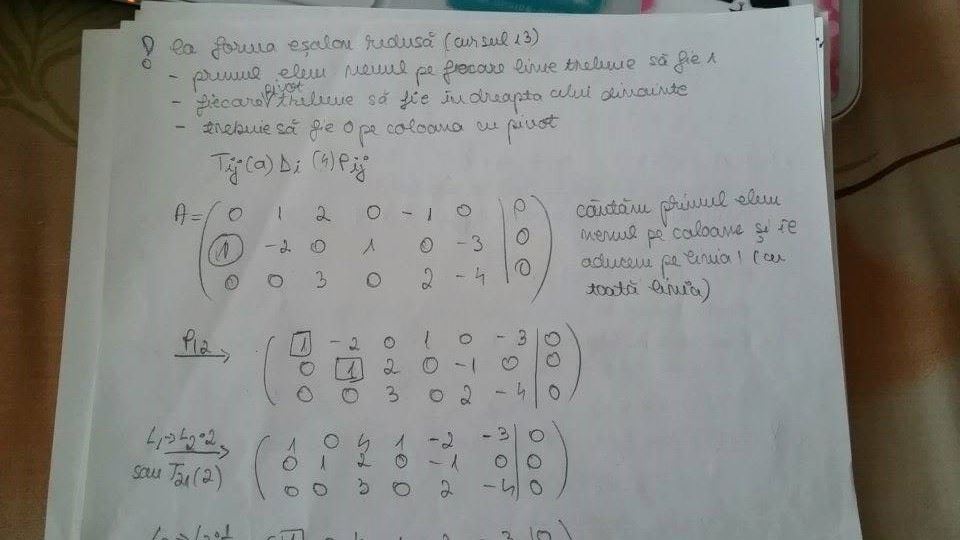 ! la forma eșalon redusă (cursul 13)
- primul elem nenul pe fiecare linie trebuie să fie 1
- fiecare pivot trebuie să fie în dreapta celui dinainte
- trebuie să fie 0 pe coloana cu pivot
Tij(a) Δi (4) Pij
A = ( 0 1 2 0 -1 0 | 0 )
1 -2 0 1 0 -3 | 0
0 0 3 0 2 -4 | 0
căutăm primul elem
nenul pe coloane și îl
aducem pe linia 1 (cu
toată linia)
P12 → ( 1 -2 0 1 0 -3 | 0 )
0 1 2 0 -1 0 | 0
0 0 3 0 2 -4 | 0
L1→L2·2
sau T21(2)
( 1 0 4 1 -2 -3 | 0 )
0 1 2 0 -1 0 | 0
0 0 3 0 2 -4 | 0